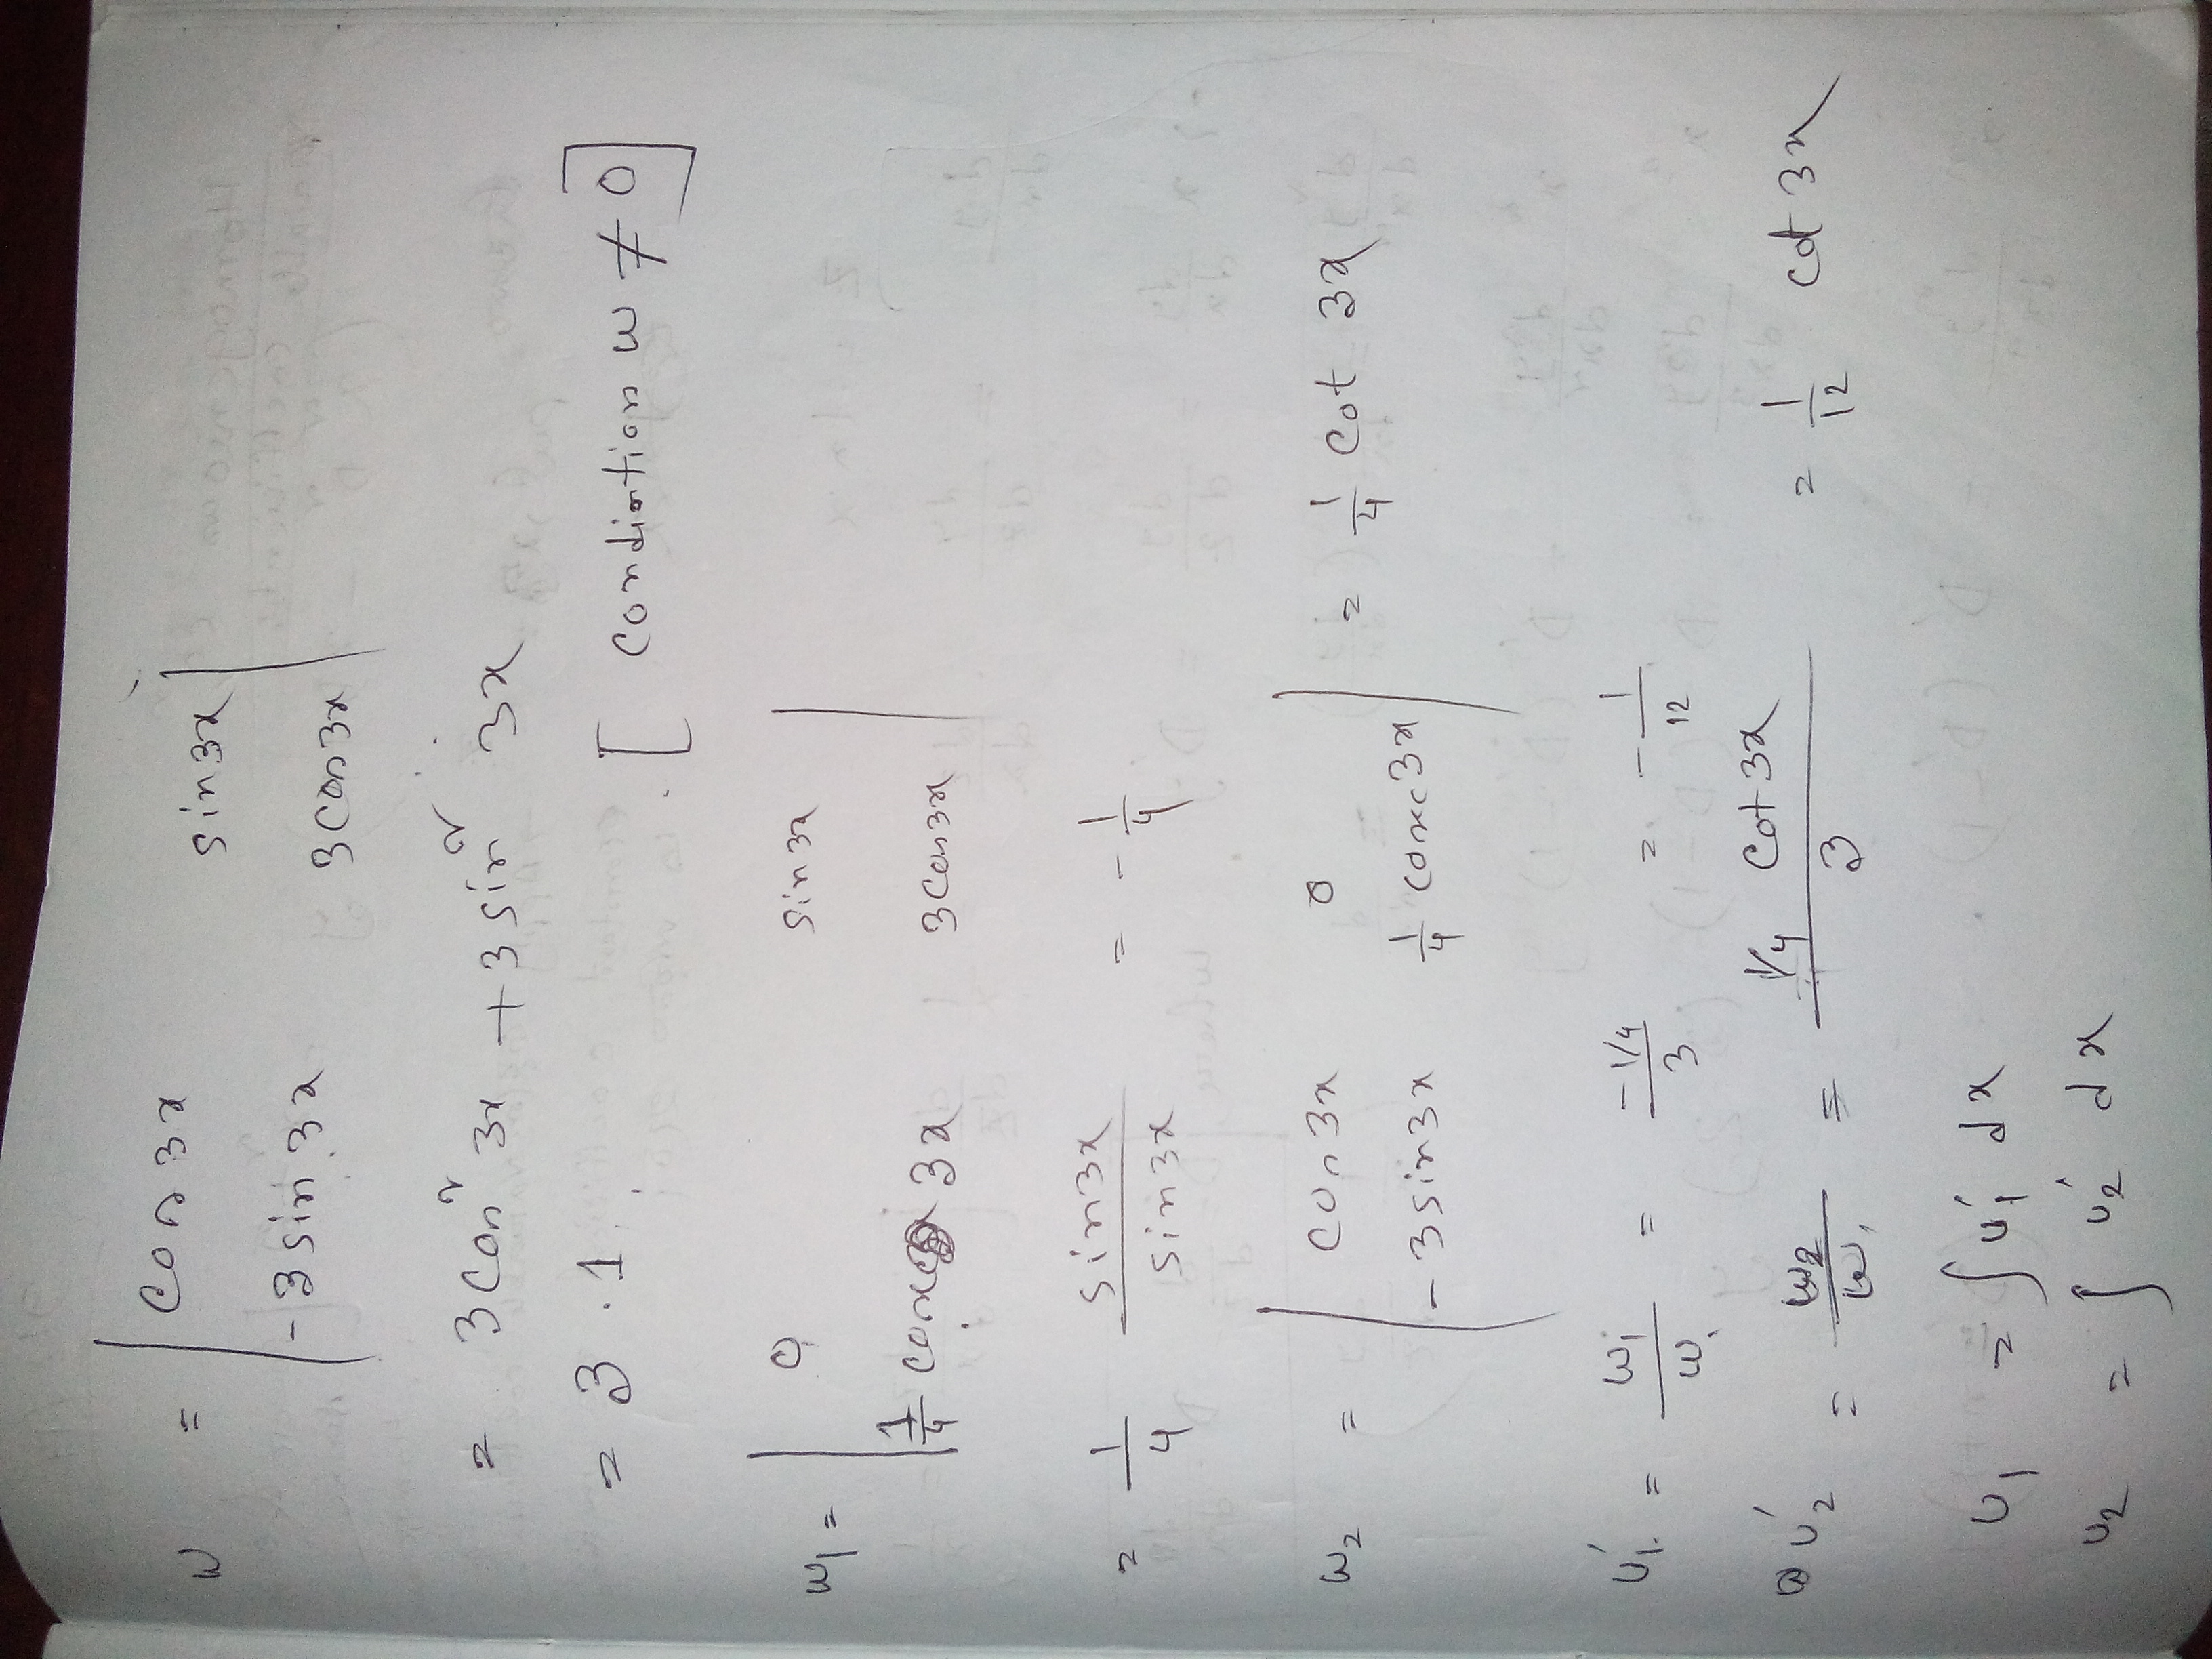 w = | cos 3x sin3x |
| -3 sin 3x 3cos3x |
= 3cos² 3x + 3sin² 3x
= 3 . 1 . [ Condiation w ≠ 0 ]
w₁ = | 0 sin 3x |
| 1/4 cosec 3x 3cos3x |
= 1/4 sin3x/sin3x = - 1/4
w₂ = | cos 3x 0 | = 1/4 cot 3x
| -3sin3x 1/4 cosec3x |
u₁' = w₁/w = -1/4/3 = - 1/12
u₂' = w₂/w = 1/4 cot 3x/3 = 1/12 cot 3x
u₁ = ∫ u₁' dx
u₂ = ∫ u₂' dx